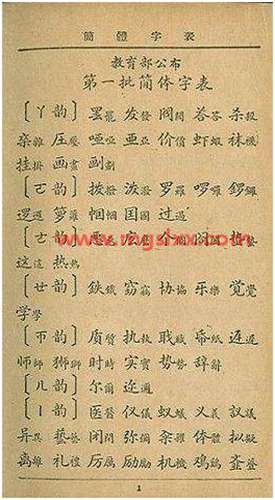 簡體字表
教育部公布
第一批简体字表
〔ㄚ韵〕 罢罷 发發 阀閥 答荅 杀殺
杂雜 压壓 哑啞 亚亞 价價 虾蝦 袜襪
挂掛 画畫 划劃
〔ㄛ韵〕 拨撥 泼潑 罗羅 啰囉 锣鑼
逻邏 箩籮 帼幗 国國 过過
www.mgsbx.com
〔ㄜ韵〕
这這 热熱
〔ㄝ韵〕 鉄鐵 窃竊 协協 乐樂 觉覺
学學
〔ㄭ韵〕 质質 执執 职職 迟遲
师師 狮獅 时時 实實 势勢 辞辭
〔ㄦ韵〕 尔爾 迩邇
〔ㄧ韵〕 医醫 仪儀 蚁蟻 义義 议議
异異 艺藝 弥彌 籴糴 体體 拟擬
离離 礼禮 厉厲 励勵 机機 鸡鷄
1